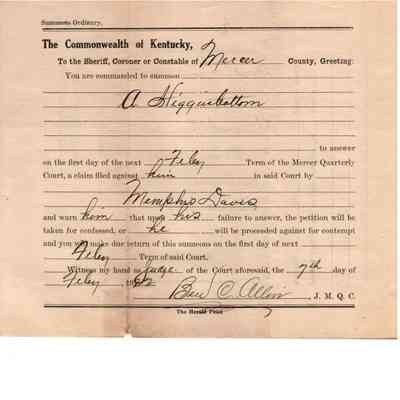 Summons Ordinary.
The Commonwealth of Kentucky,
To the Sheriff, Coroner or Constable of Mercer County, Greeting:
You are commanded to summon
A Higginbottom
to answer
on the first day of the next Feby Term of the Mercer Quarterly
Court, a claim filed against him in said Court by
Memphis Davis
and warn him that upon his failure to answer, the petition will be
taken for confessed, or he will be proceeded against for contempt
and you will make due return of this summons on the first day of next
Feby Term of said Court.
Witness my hand as Judge of the Court aforesaid, the 7th day of
Feby 19
Ben C. Allin, J. M. Q. C.
The Herald Print